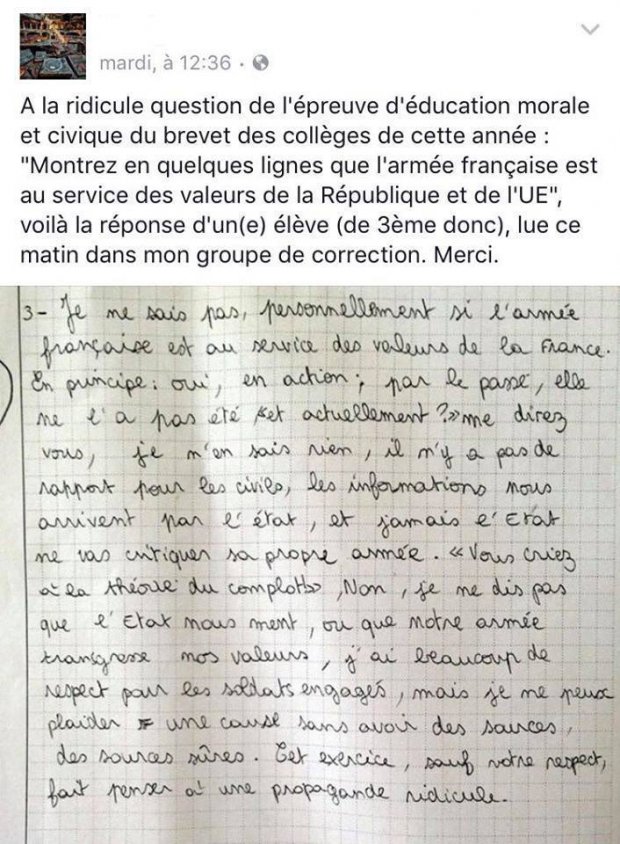 mardi, à 12:36 ·
A la ridicule question de l'épreuve d'éducation morale
et civique du brevet des collèges de cette année :
"Montrez en quelques lignes que l'armée française est
au service des valeurs de la République et de l'UE",
voilà la réponse d'un(e) élève (de 3ème donc), lue ce
matin dans mon groupe de correction. Merci.
3- Je ne sais pas, personnellement si l'armée
française est au service des valeurs de la France.
En principe : oui, en action ; par le passé, elle
ne l'a pas été «et actuellement ?» me direz
vous, je n'en sais rien, il n'y a pas de
rapport pour les civils, les informations nous
arrivent par l'état, et jamais l'Etat
ne vas critiquer sa propre armée. «Vous criez
à la théorie du complot», Non, je ne dis pas
que l'Etat nous ment, ou que notre armée
transgresse nos valeurs, j'ai beaucoup de
respect pour les soldats engagés, mais je ne peux
plaider une cause sans avoir des sources,
des sources sûres. Cet exercice, sauf votre respect,
fait penser à une propagande ridicule.